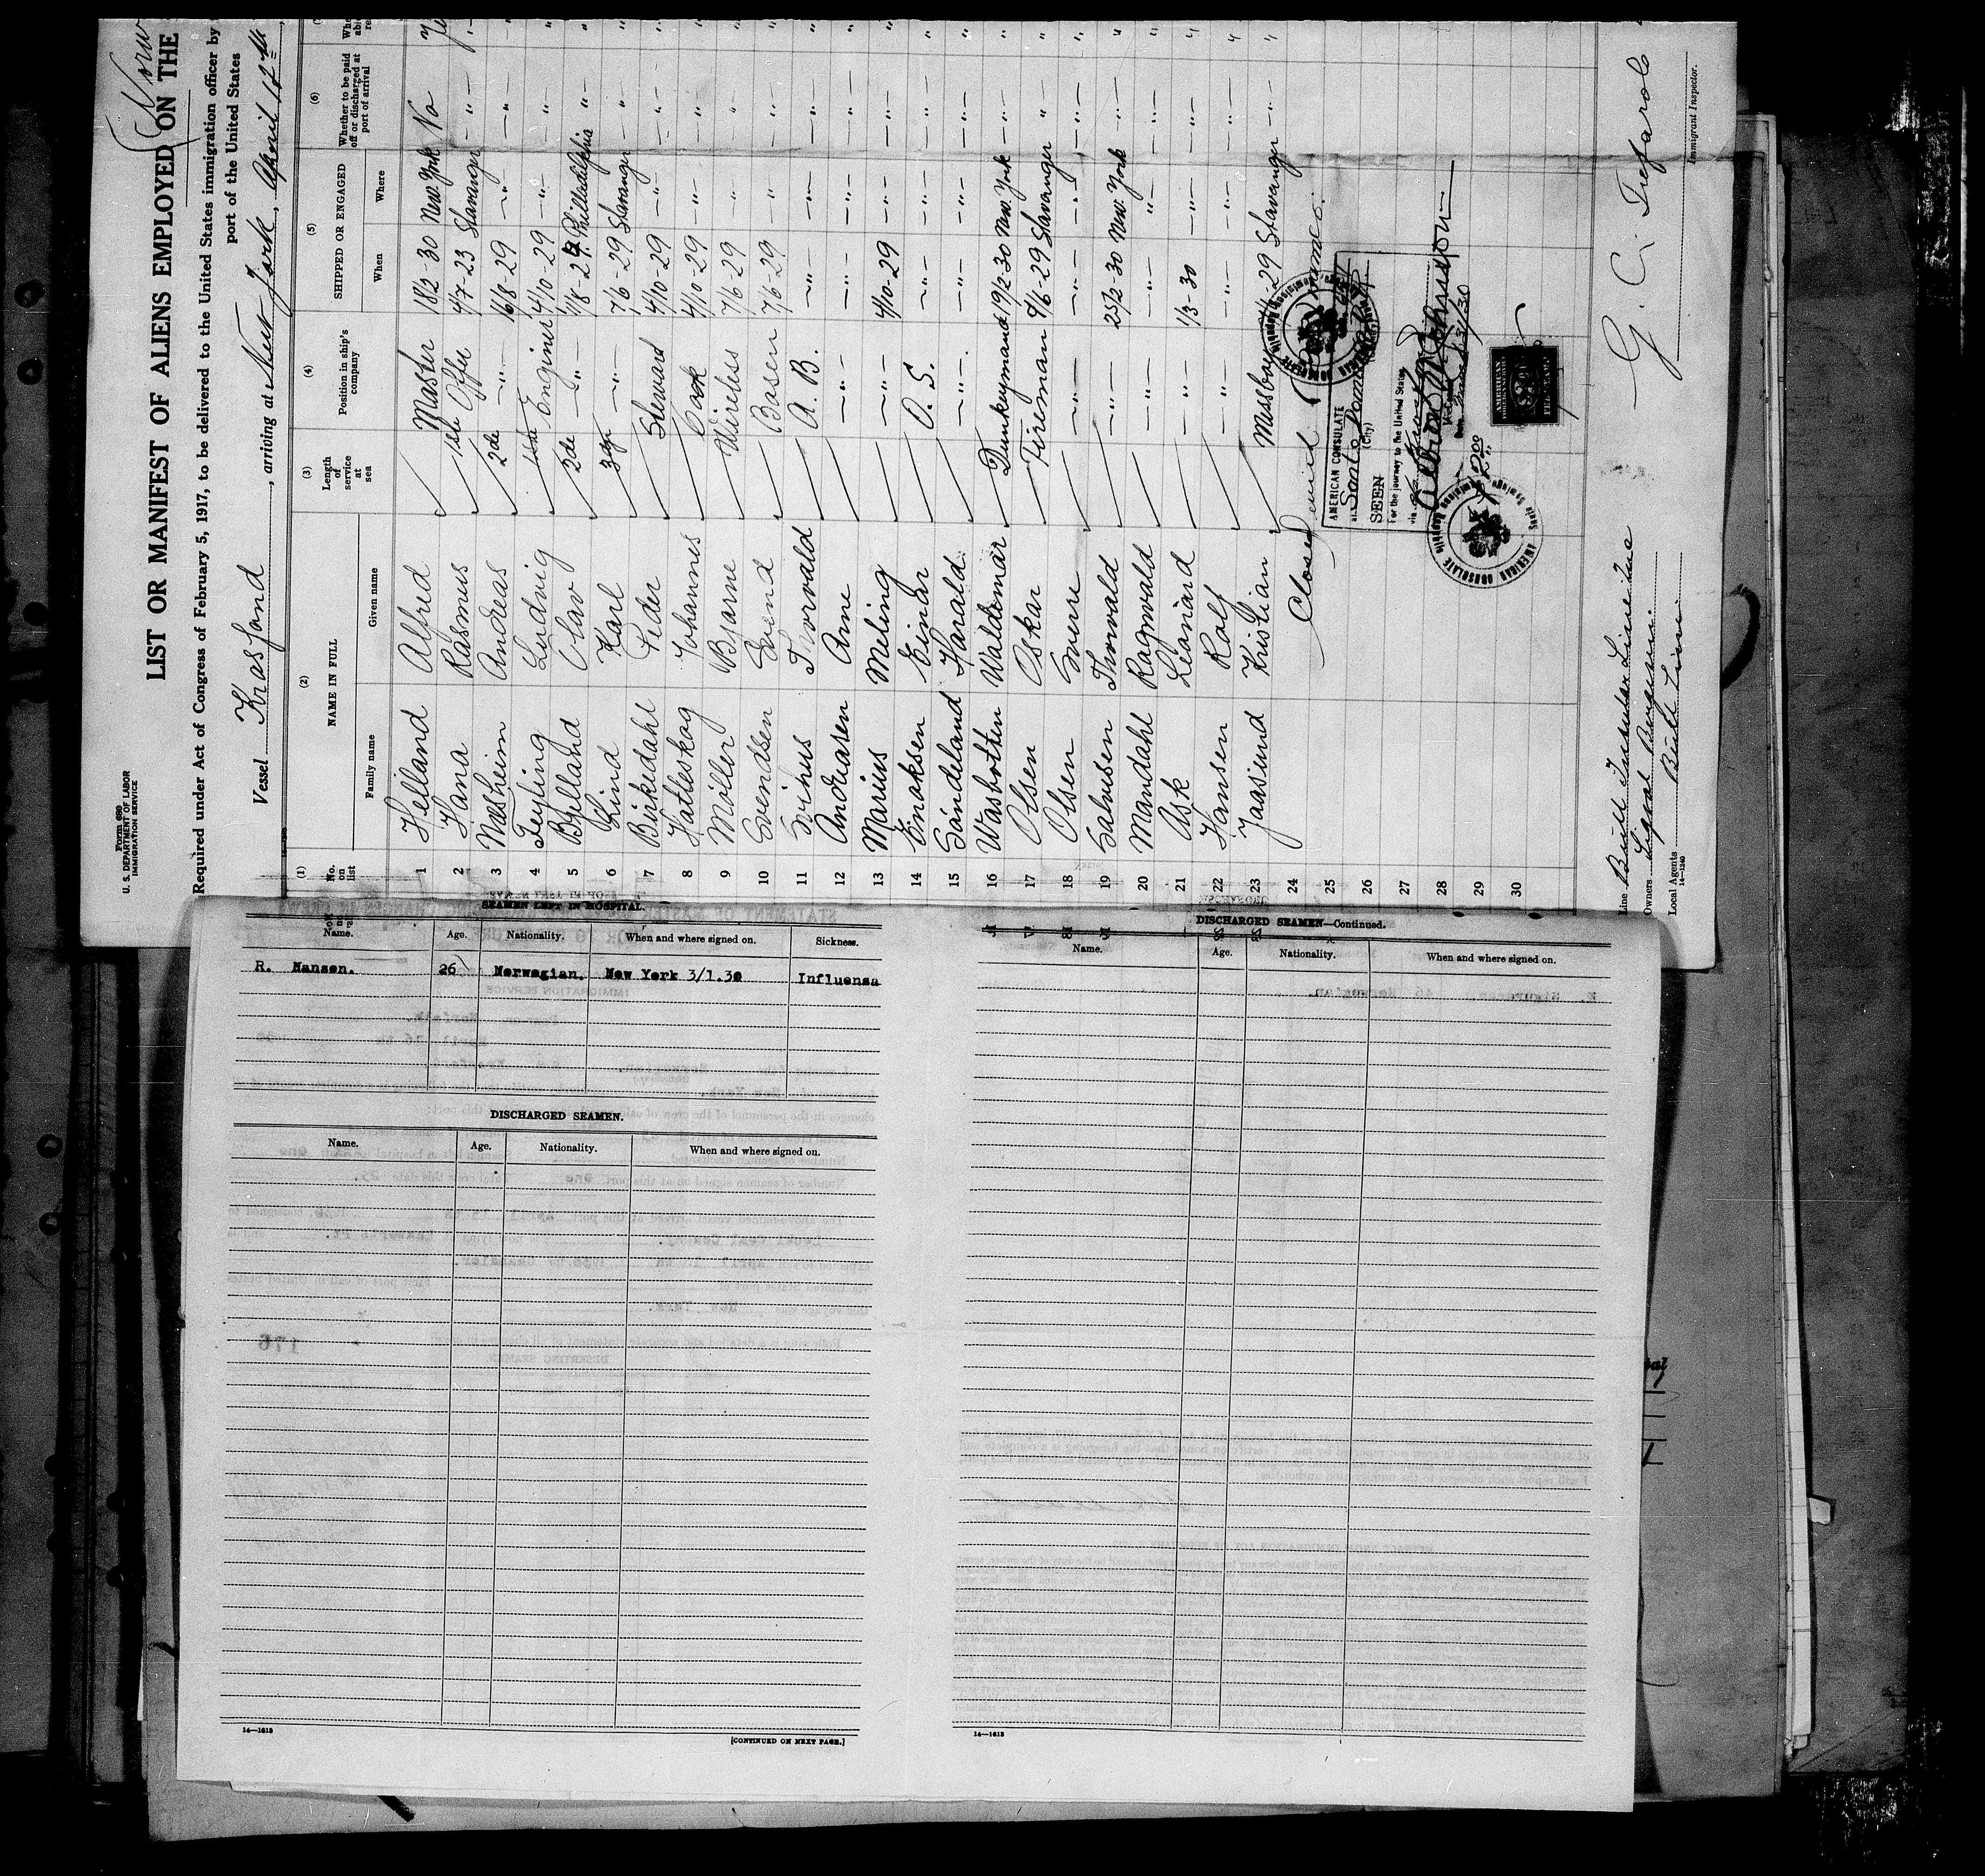 (Norw
Form 680
U. S. DEPARTMENT OF LABOR
IMMIGRATION SERVICE
LIST OR MANIFEST OF ALIENS EMPLOYED ON THE
Required under Act of Congress of February 5, 1917, to be delivered to the United States immigration officer by
port of the United States
Vessel Krasfond, arriving at New York, April 10th
(1) (2) (3) (4) (5) (6)
No. on list NAME IN FULL Length of service at sea Position in ship's company SHIPPED OR ENGAGED Whether to be paid off or discharged at port of arrival
Family name Given name When Where
1 Helland Alfred Master 18/2-30 New York No
2 Hana Rasmus 1ste Offer 4/7-23 Stavanger -"-
3 Næsheim Andreas 2de -"- 16/8-29 -"- -"-
4 Teyting Ludvig 1ste Enginer 4/10-29 -"- "
5 Bylland Olav 2de -"- 11/8-29 Philladelphia "-
6 Lind Karl 3dje -"- 7/6-29 Stavanger -"-
7 Birkedahl Peder Steward 4/10-29 -"- -"-
8 Hatleskog Johannes Cook 4/10-29 -"- -"-
9 Möller Bjarne Wireless 7/6-29 " "
10 Svendsen Svend Basen 7/6-29 -"- -"-
11 Sirhus Thorvald A. B. -"- -"- -"-
12 Andreasen Arne -"- -"- -"- -"-
13 Marius Meling -"- 4/10-29 -"- -"-
14 Enoksen Einar O. S. -"- -"- -"-
15 Sandeland Harald -"- -"- -"- -"-
16 Wasbotten Waldemar Dunkeymand 19/2-30 New York -"-
17 Olsen Oskar Fireman 9/6-29 Stavanger "
18 Olsen Sverre -"- -"- -"- -"-
19 Salvesen Thorvald -"- 25/2-30 New York -"-
20 Mandahl Ragnvald -"- -"- -"- -"-
21 Ask Leonard -"- 1/3-30 -"- -"-
22 Hansen Rolf -"- -"- -"- -"-
23 Jaasund Kristian Messboy 4/-29 Stavanger -"-
24 Closed
25
26
27
28
29
30
AMERICAN CONSULATE
at Santo Domingo
(City)
SEEN
For the journey to the United States
via
Albion W. Johnson
AMERICAN CONSULATE
Line Bull Insular Line Inc
Owners Sigval Bergesen
Local Agents Bull Line
14-1240
Immigrant Inspector.
SEAMEN LEFT IN HOSPITAL.
Name. Age. Nationality. When and where signed on. Sickness.
R. Hansen. 26 Norwegian. New York 3/1.30 Influensa
DISCHARGED SEAMEN.
Name. Age. Nationality. When and where signed on.
14—1613
[CONTINUED ON NEXT PAGE.]
DISCHARGED SEAMEN—Continued.
Name. Age. Nationality. When and where signed on.
14—1613